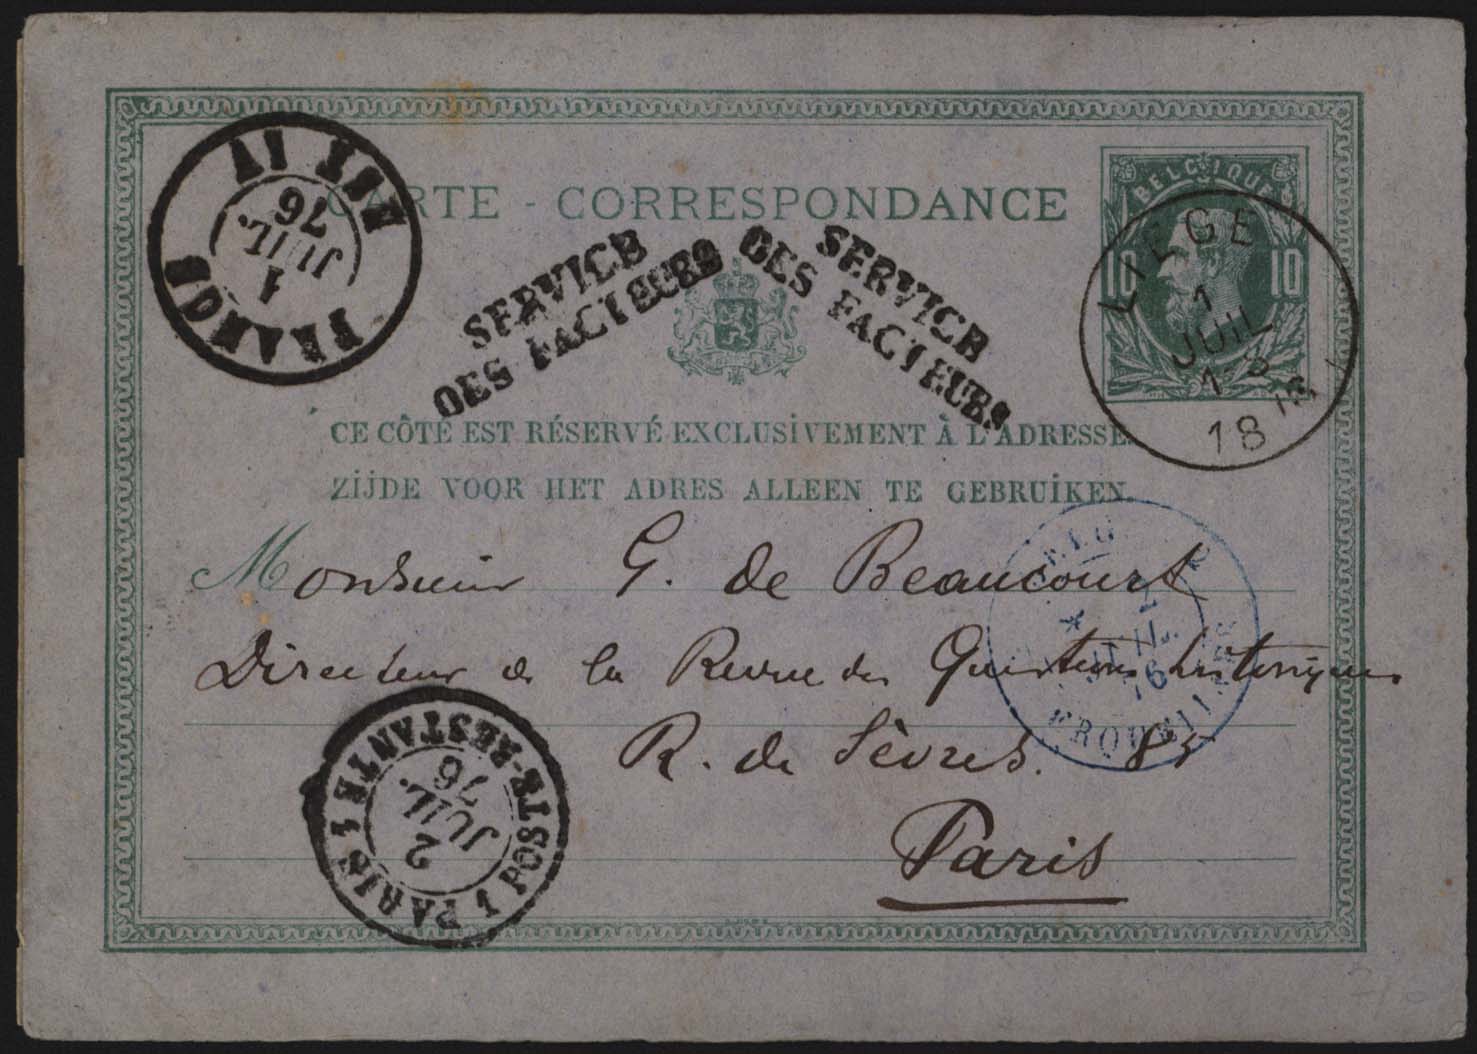 CARTE - CORRESPONDANCE
BELGIQUE
10 10
LIEGE
1
JUIL
1-8
18
FRANCO
1
JUIL.
76
SERVICE
DES FACTEURS
SERVICE
DES FACTEURS
CE CÔTÉ EST RÉSERVÉ EXCLUSIVEMENT À L'ADRESSE.
ZIJDE VOOR HET ADRES ALLEEN TE GEBRUIKEN.
Monsieur G. de Beaucourt
Directeur de la Revue des Questions historiques
R. de Sèvres. 85
Paris
PARIS 1 1 POSTE-RESTANTE
2
JUIL.
76